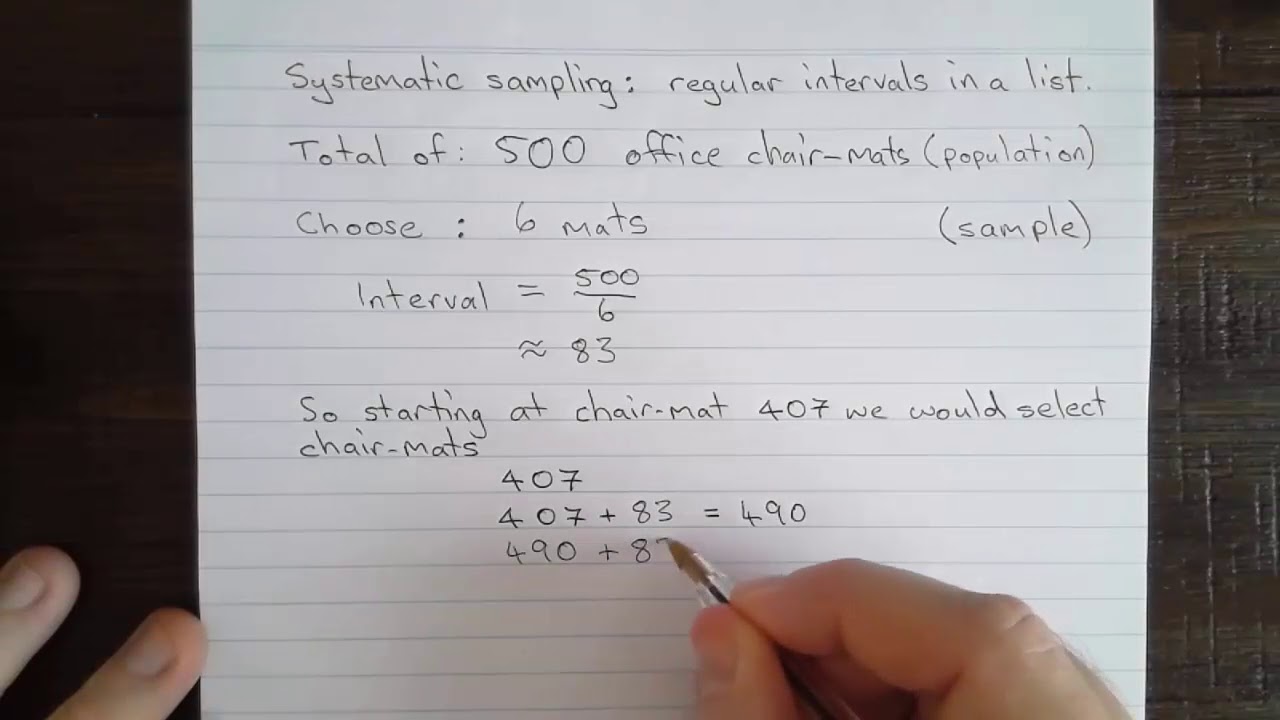 Systematic sampling: regular intervals in a list.
Total of: 500 office chair-mats (population)
Choose: 6 mats (sample)
Interval = 500/6
≈ 83
So starting at chair-mat 407 we would select
chair-mats
407
407 + 83 = 490
490 + 8